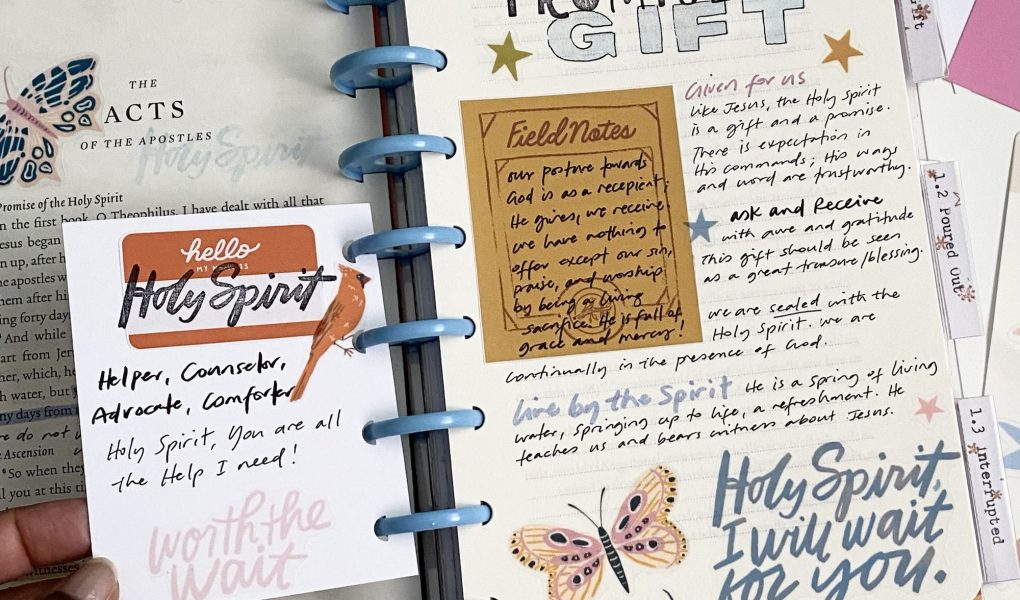 THE
ACTS
OF THE APOSTLES
Holy Spirit
Promise of the Holy Spirit
n the first book, O Theophilus, I have dealt with all that
esus began
n up, after h
he apostles w
hem after his
ing forty day
And while
art from Jer
her, which, he
h water, but y
ny days from
re do not
Ascension
So when they
l you at this ti
hello
MY NAME IS
Holy Spirit
Helper, Counselor,
Advocate, Comforter
Holy Spirit, You are all
the Help I need!
worth the
wait
GIFT
Given for us
like Jesus, the Holy Spirit
is a gift and a promise.
There is expectation in
His commands; His ways
and word are trustworthy.
Field Notes
our posture towards
God is as a recepient;
He gives, we receive.
we have nothing to
offer except our sin,
praise, and worship
by being a living
sacrifice. He is full of
grace and mercy!
ask and Receive
with awe and gratitude
This gift should be seen
as a great treasure/blessing.
we are sealed with the
Holy Spirit. we are
continually in the presence of God.
live by the Spirit He is a spring of living
water, springing up to life, a refreshment. He
teaches us and bears witness about Jesus.
Holy Spirit,
I will wait
for you.
1.2 Poured Out
1.3 interrupted